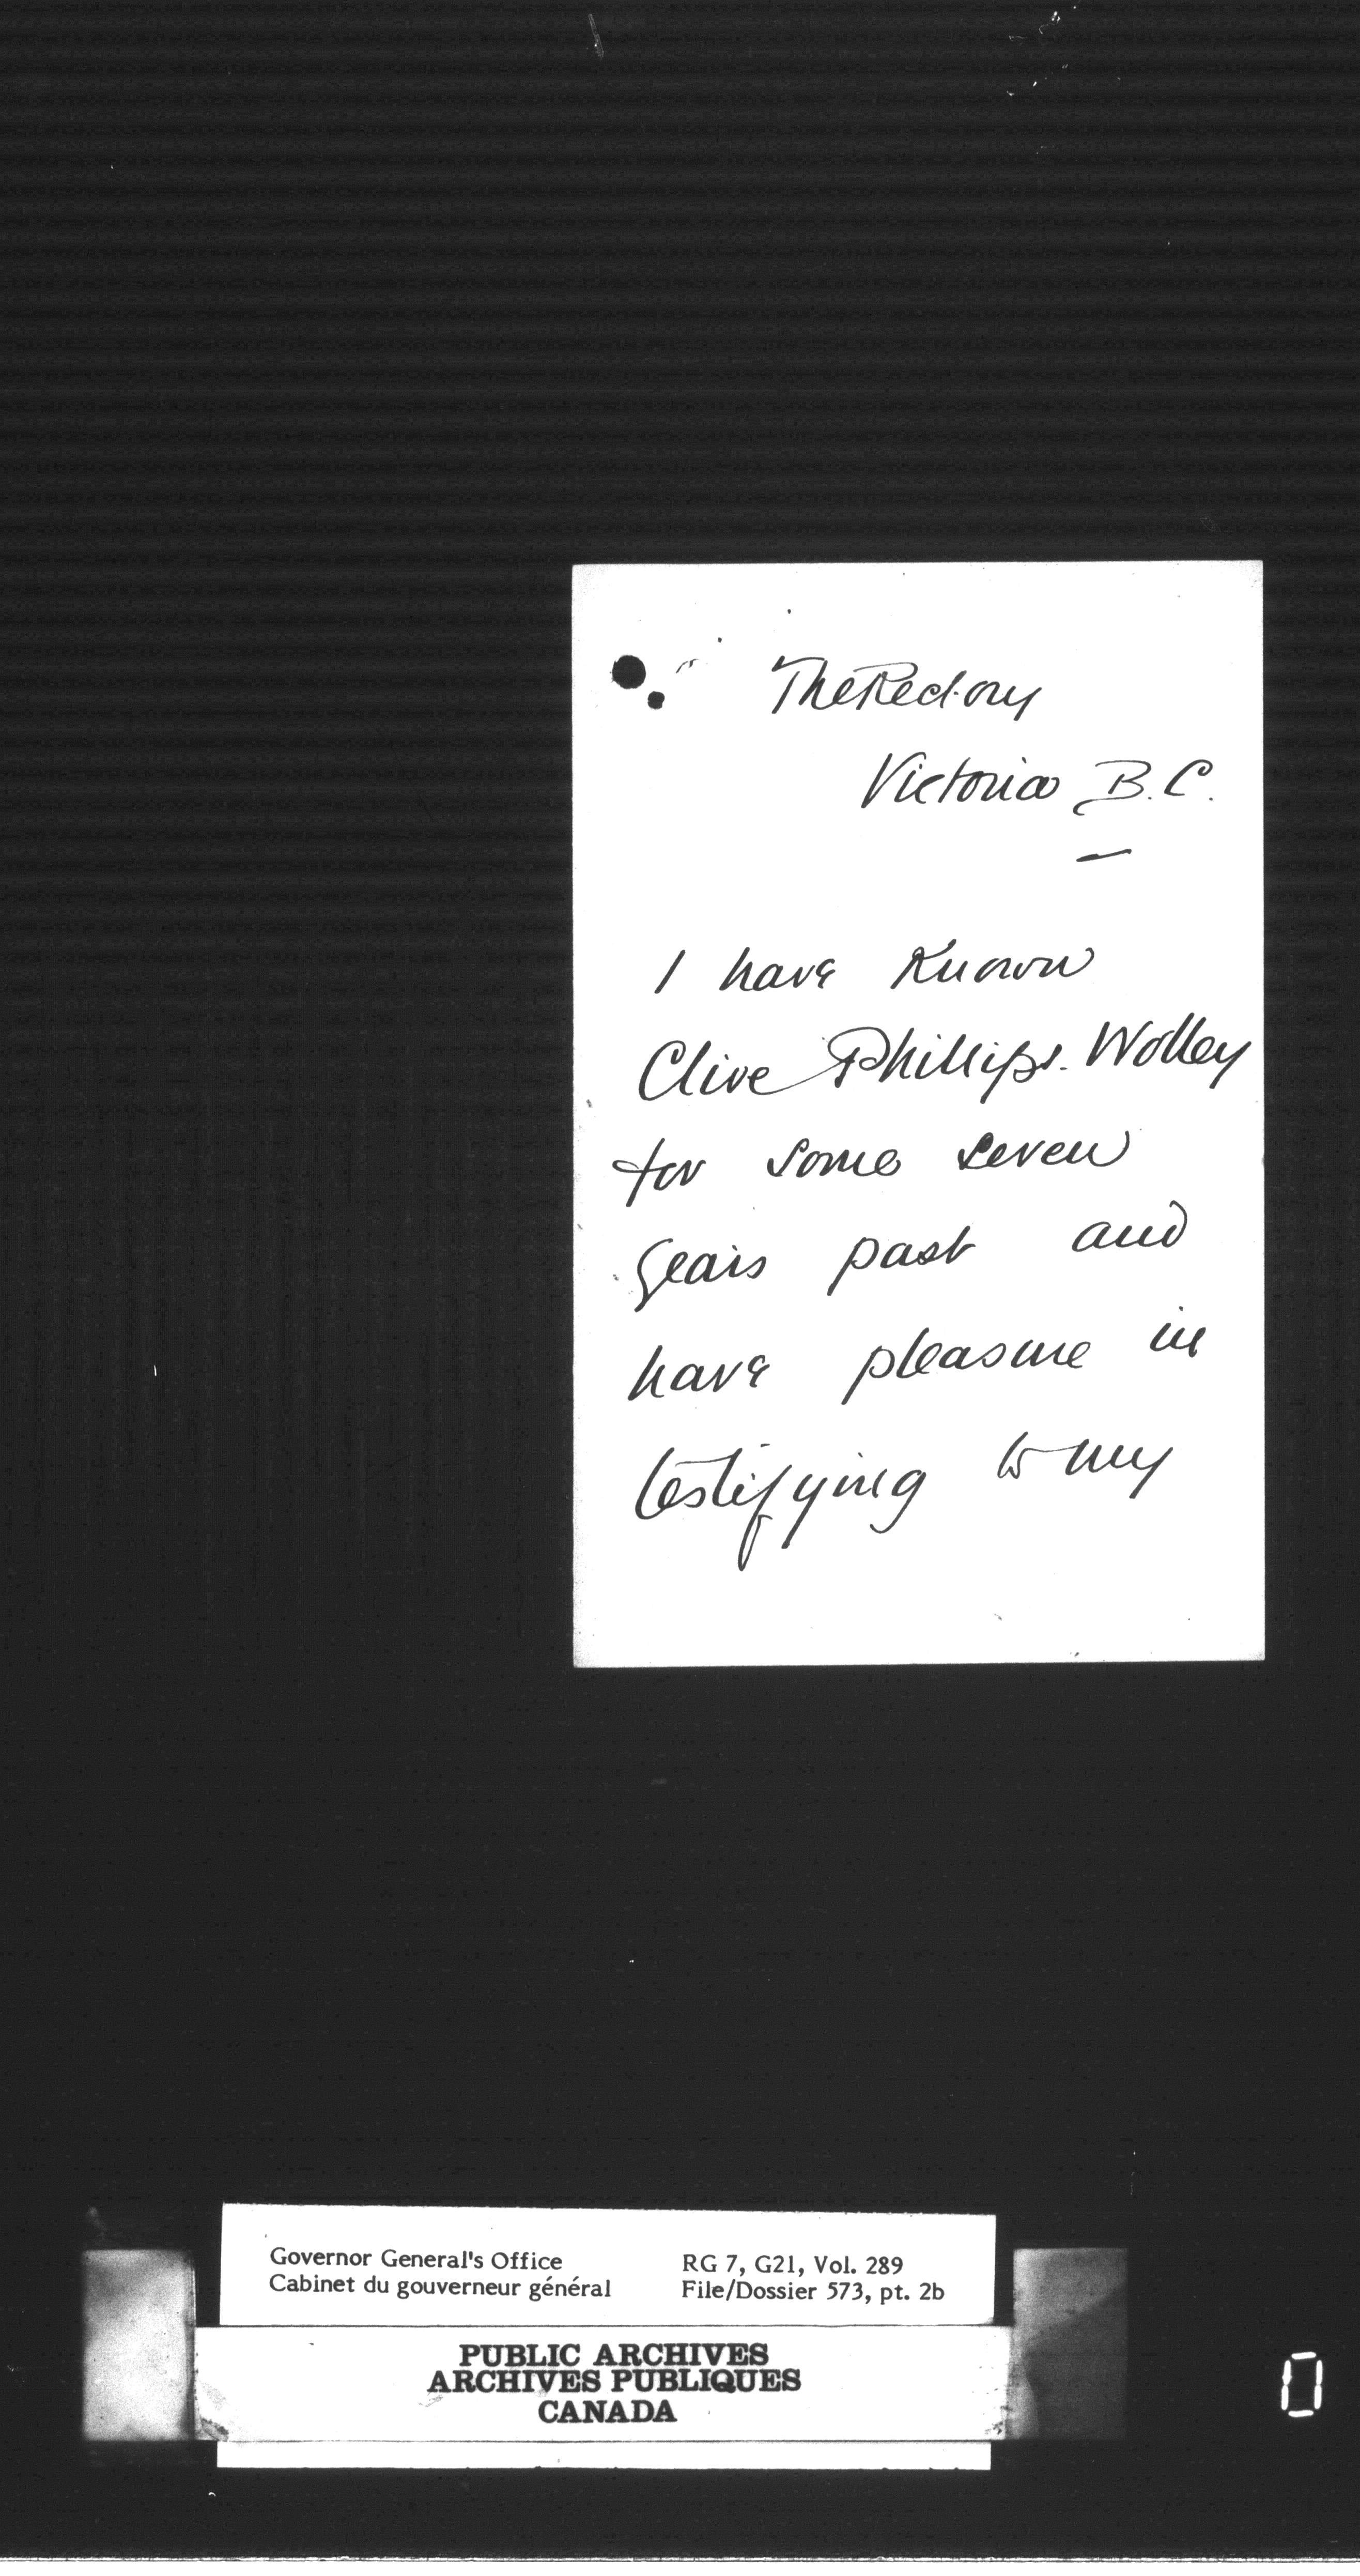 The Rectory
Victoria B.C.
—
I have Known
Clive Phillipps-Wolley
for some seven
years past and
have pleasure in
testifying to my
Governor General's Office
Cabinet du gouverneur général
RG 7, G21, Vol. 289
File/Dossier 573, pt. 2b
PUBLIC ARCHIVES
ARCHIVES PUBLIQUES
CANADA
0